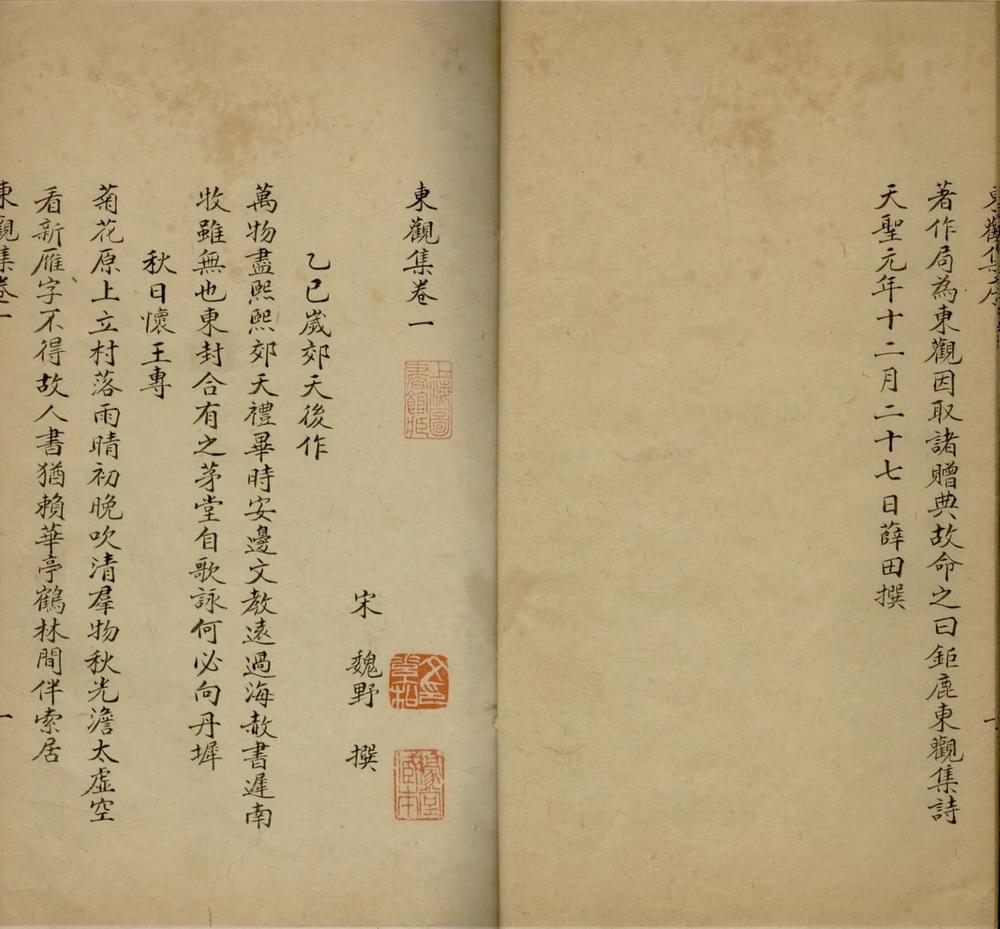 東觀集序
著作局為東觀因取諸贈典故命之曰鉅鹿東觀集詩
天聖元年十二月二十七日薛田撰
一
東觀集卷一
上海圖書館臧
宋 魏野 撰
乙巳嵗郊天後作
萬物盡熙熙郊天禮畢時安邊文教遠過海赦書遲南
牧雖無也東封合有之茅堂自歌詠何必向丹墀
秋日懷王專
菊花原上立村落雨晴初晚吹清羣物秋光澹太虛空
看新雁字不得故人書猶賴華亭鶴林間伴索居
東觀集卷一
一